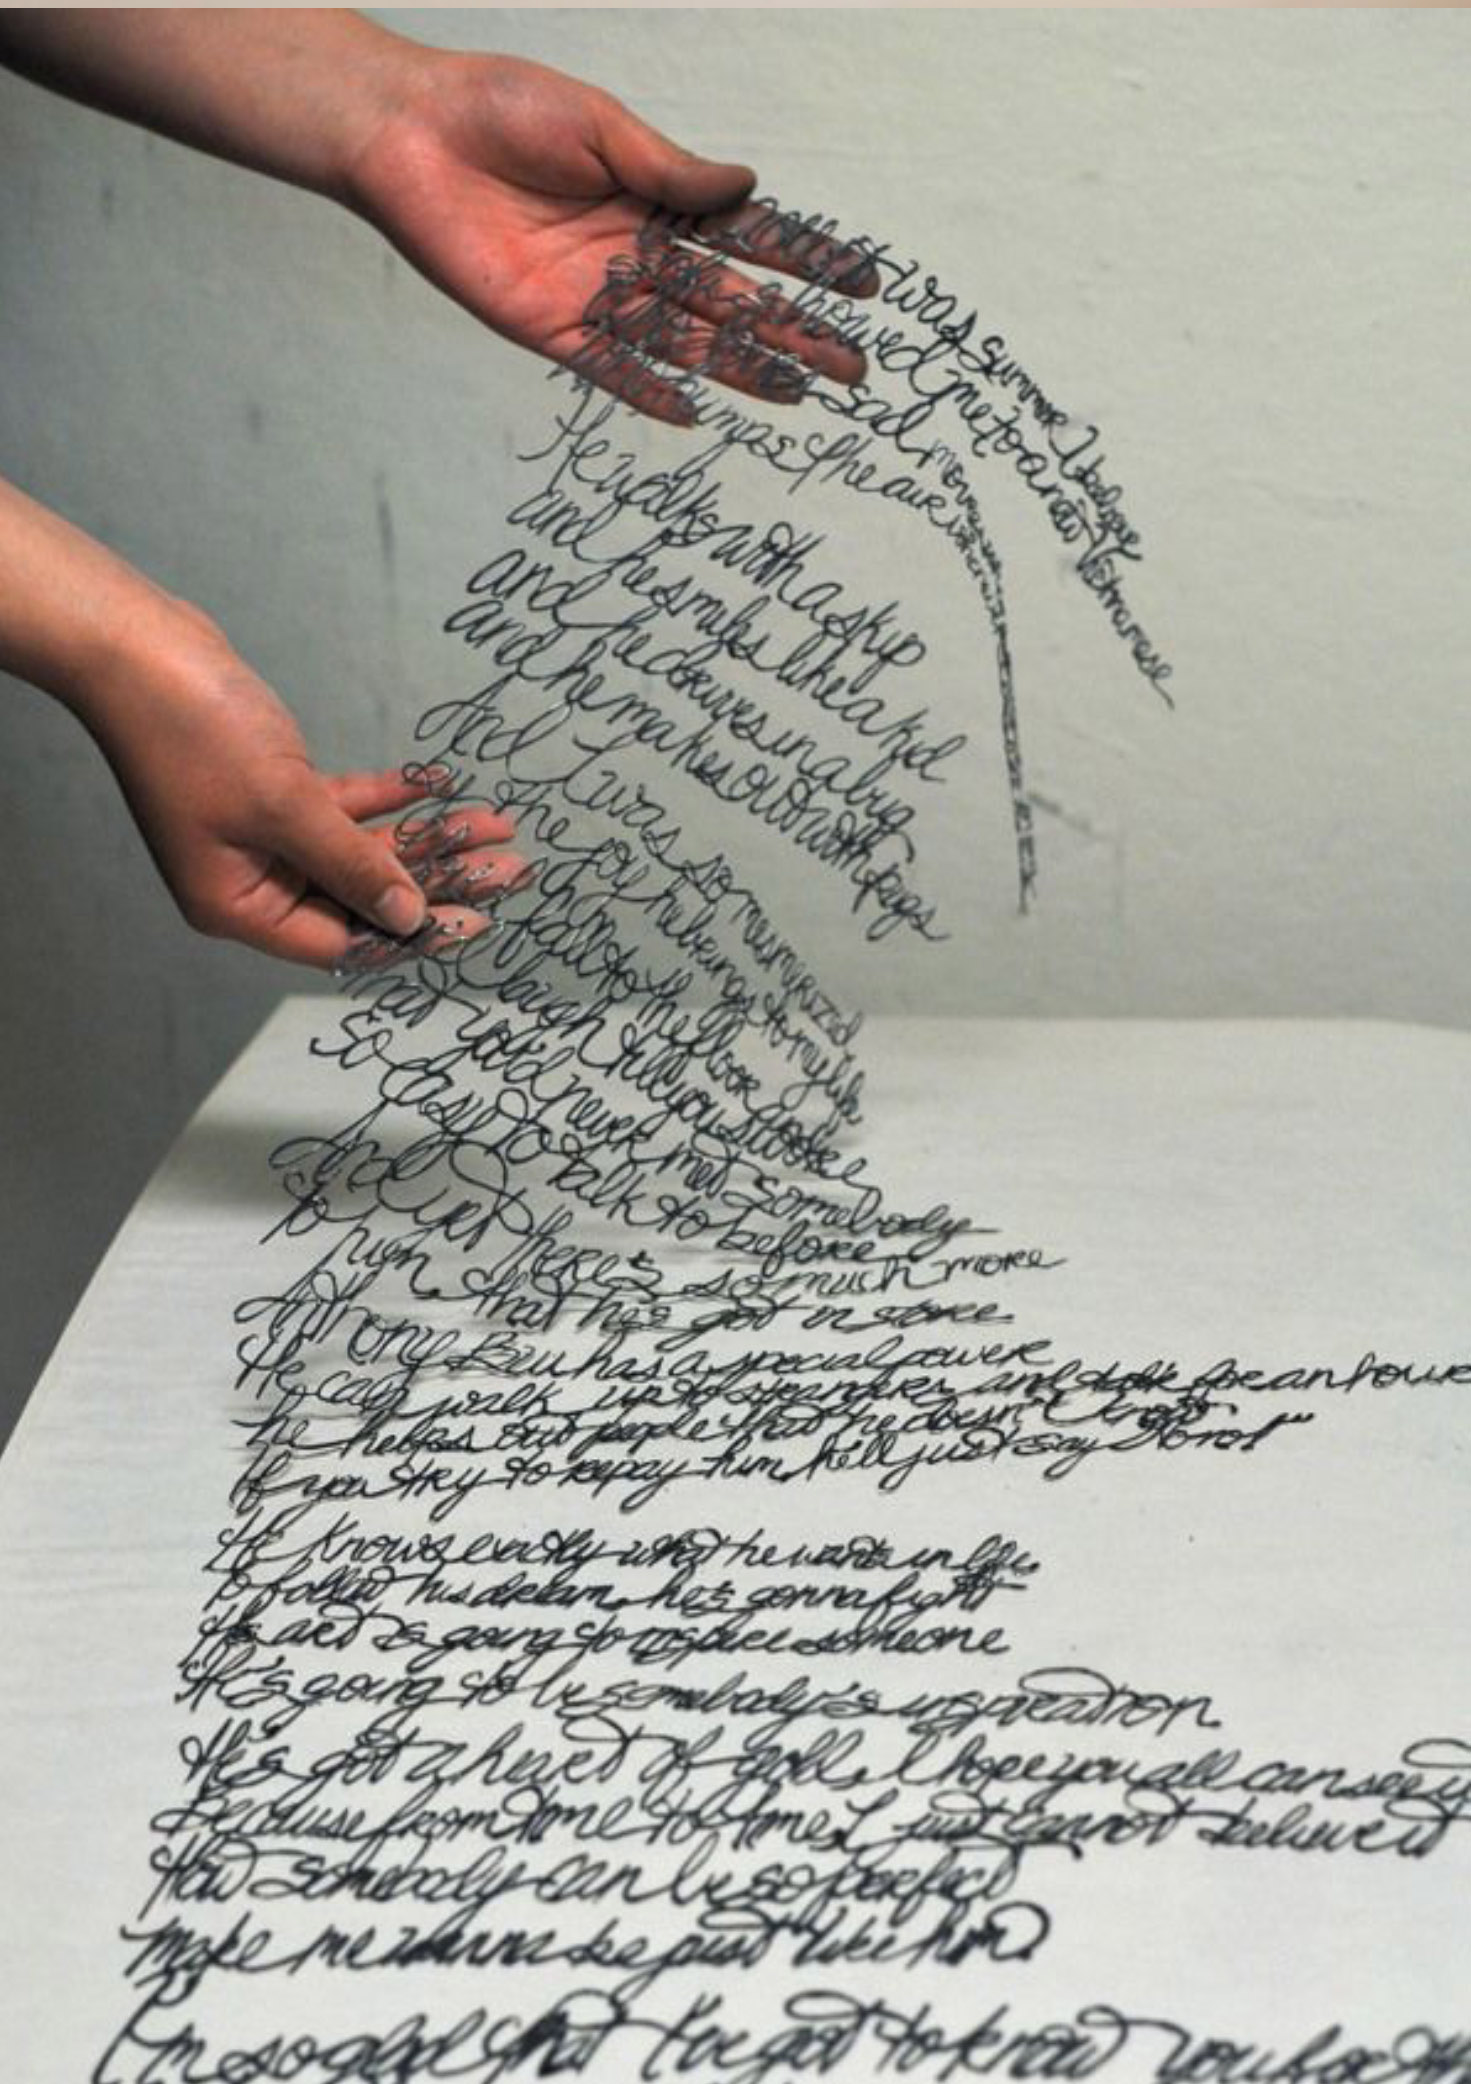 it was summer I believe
showed me to a new Vietnamese
sad
bumps the air
He walks with a skip
and he smiles like a kid
and he drives in a bug
and he makes out with pugs
And I was so mesmyrizid
by the joy he brings to my life
fall to the floor and
laugh till you
that you'd never met somebody
So easy to talk to before
And yet there's so much more
To him that he's got in store
Anthony Bui has a special power
He can walk up to strangers and talk for an hour
he helps out people that he doesn't know
If you try to repay him, he'll just say
He knows exactly what he wants in life
To follow his dream, he's gonna fight
His art is going to inspire someone
He's going to be somebody's inspiration.
He's got a heart of gold, I hope you all can see it
Because from time to time I just cannot believe it
How somebody can be so perfect
Make me wanna be just like him
I'm so glad that I've got to know you for